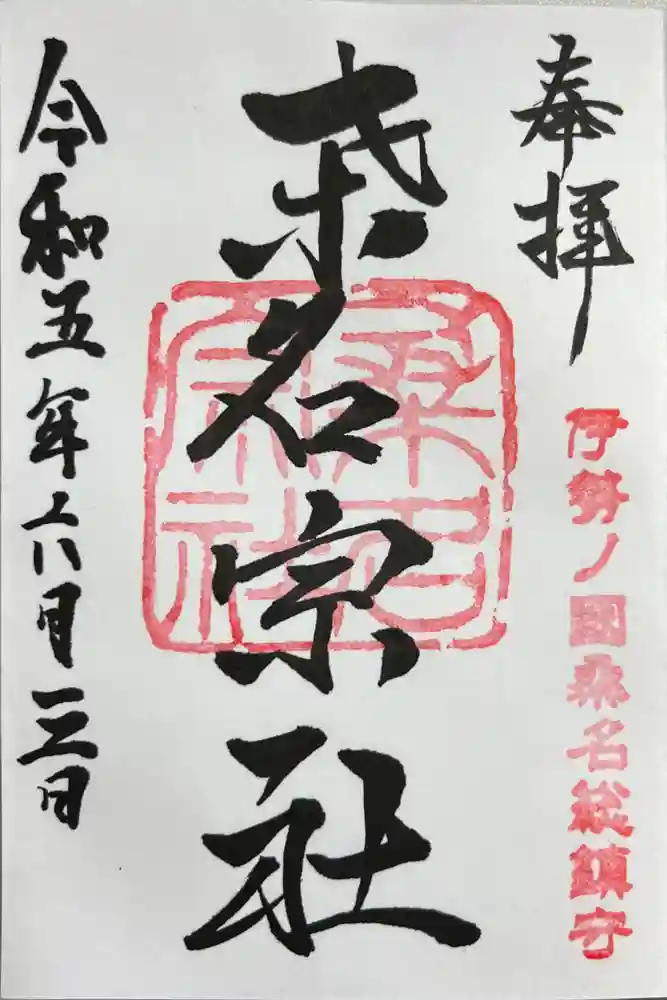 奉拝
伊勢ノ國桑名総鎮守
桑名宗社
桑名宗社
令和五年六月三日